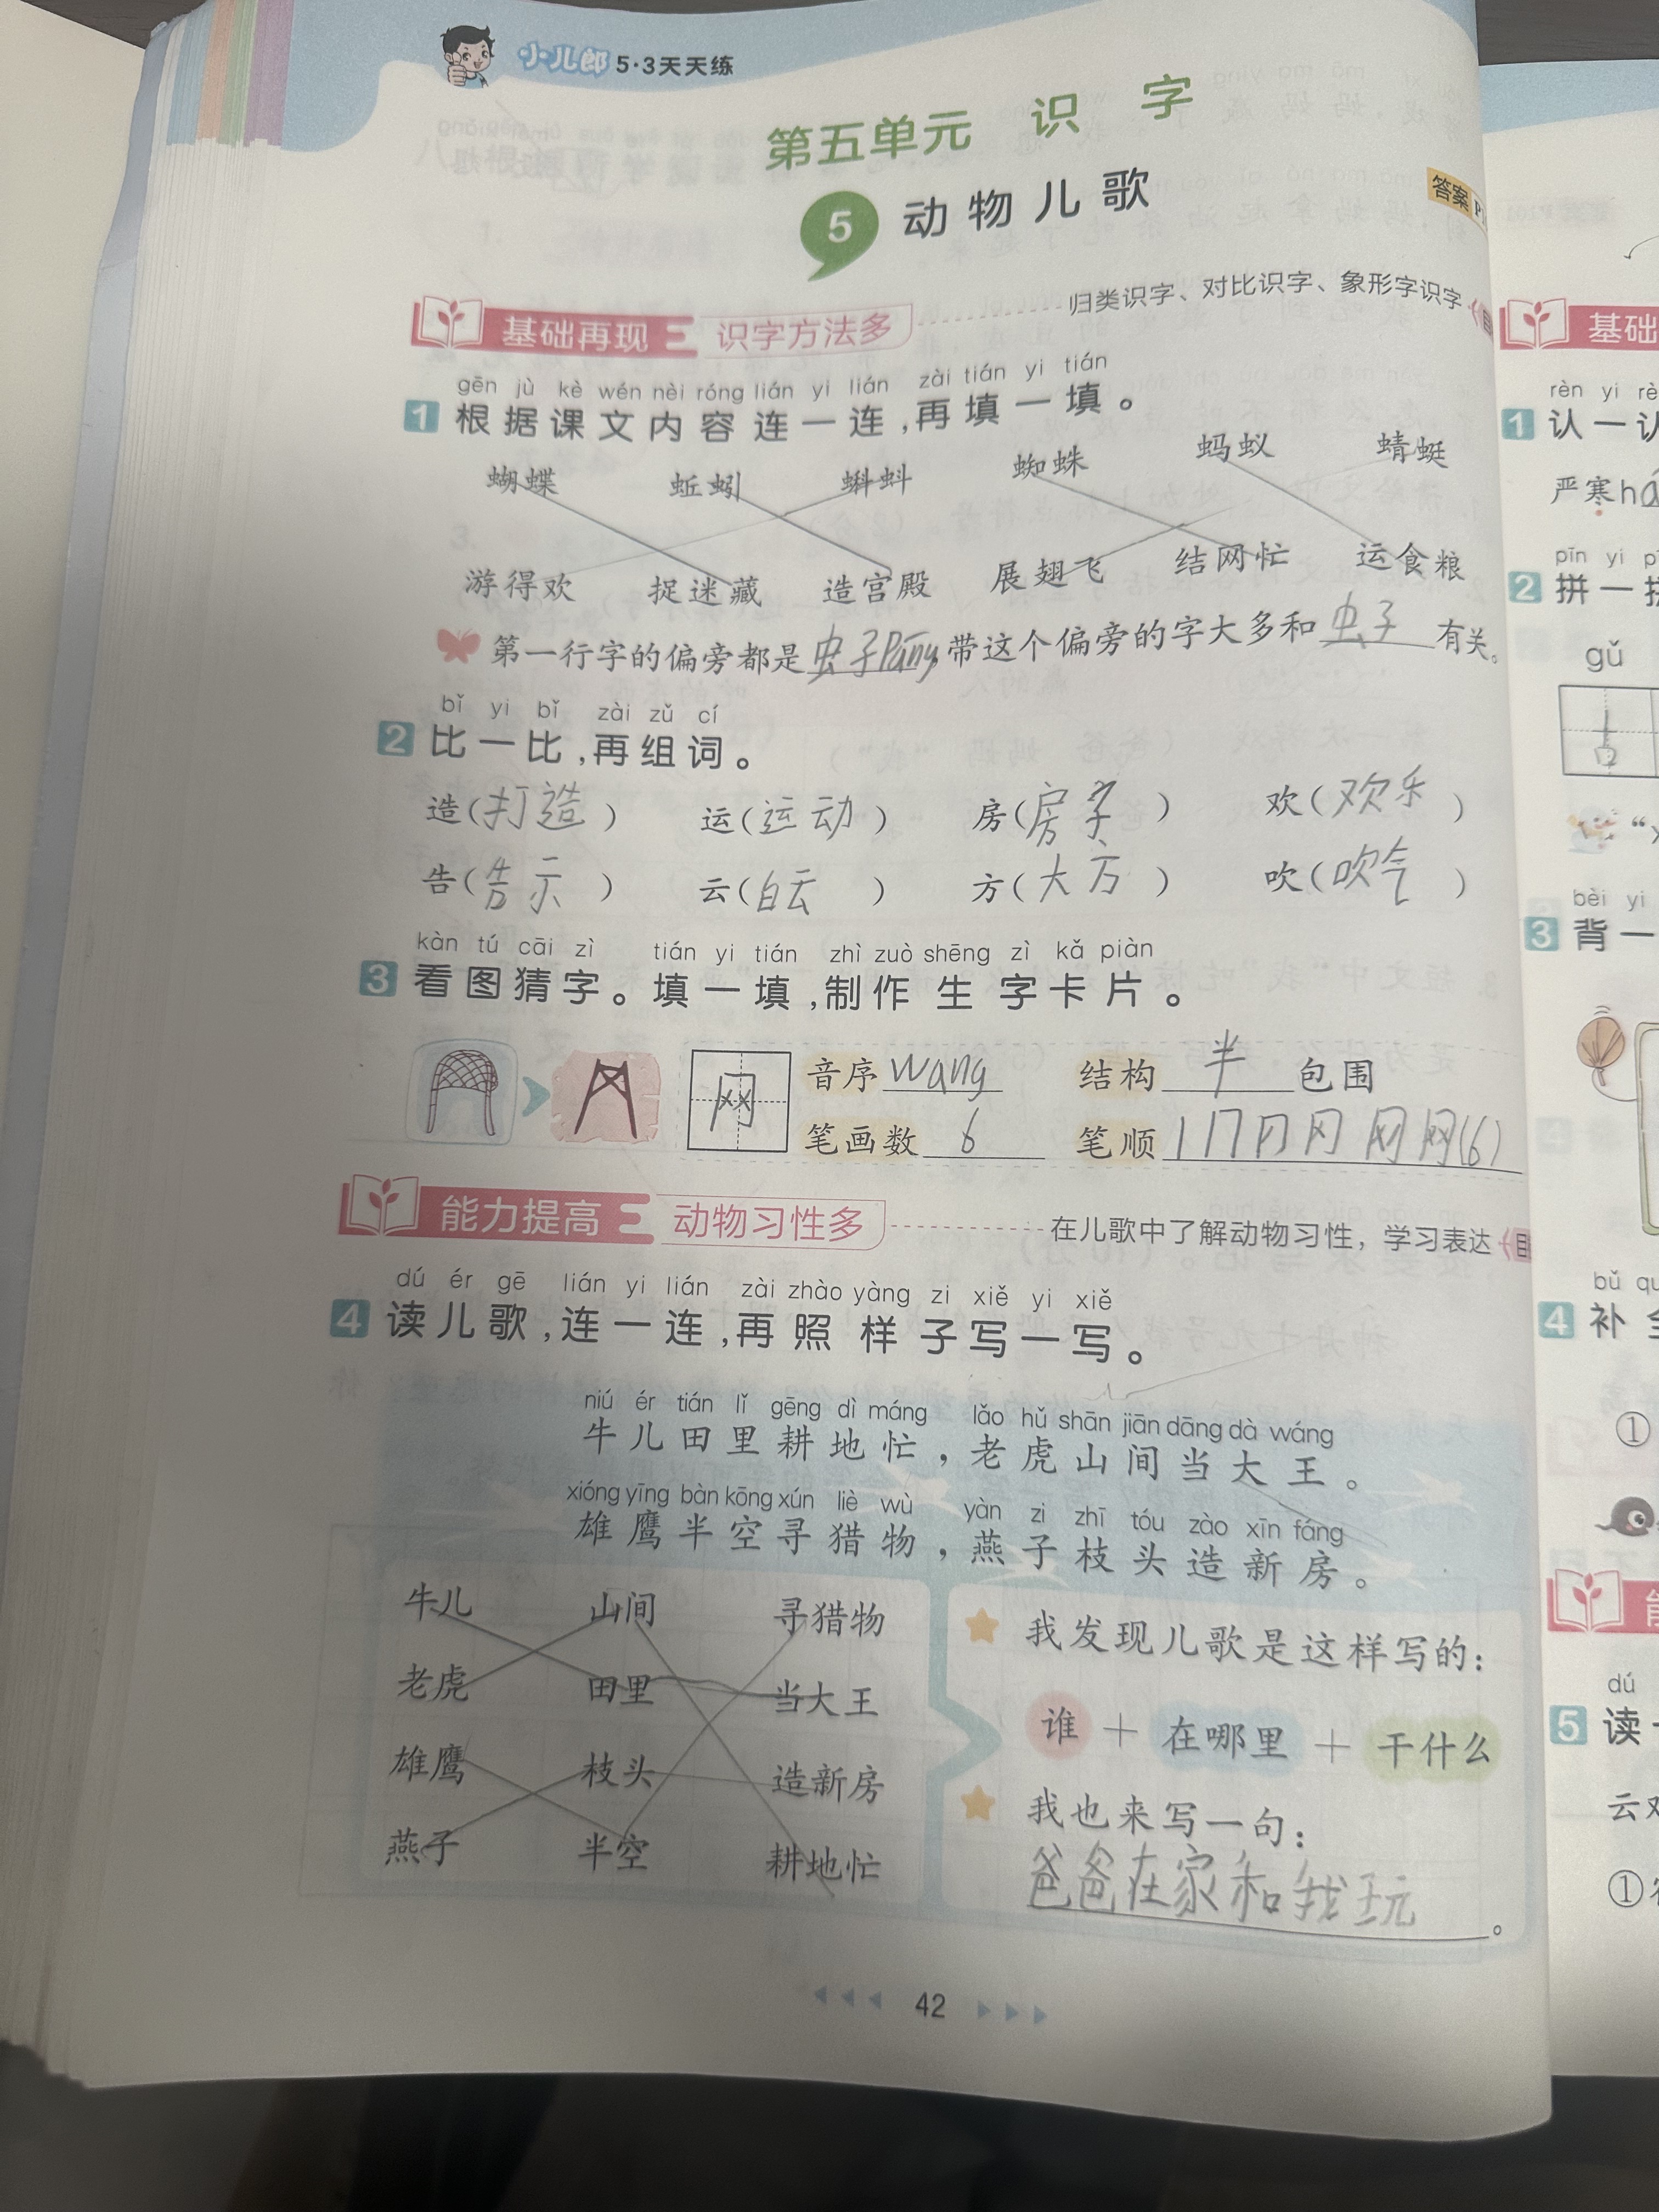 小儿郎 5·3天天练
第五单元 识 字
5 动物儿歌
答案
基础再现 识字方法多 归类识字、对比识字、象形字识字
gēn jù kè wén nèi róng lián yi lián zài tián yi tián
1 根据课文内容连一连,再填一填。
蝴蝶 蚯蚓 蝌蚪 蜘蛛 蚂蚁 蜻蜓
游得欢 捉迷藏 造宫殿 展翅飞 结网忙 运食粮
第一行字的偏旁都是虫子Páng,带这个偏旁的字大多和虫子有关。
bǐ yi bǐ zài zǔ cí
2 比一比,再组词。
造(打造) 运(运动) 房(房子) 欢(欢乐)
告(告示) 云(白云) 方(大方) 吹(吹气)
kàn tú cāi zì tián yi tián zhì zuò shēng zì kǎ piàn
3 看图猜字。填一填,制作生字卡片。
网 音序 wang 结构 半 包围
笔画数 6 笔顺
能力提高 动物习性多 在儿歌中了解动物习性，学习表达
dú ér gē lián yi lián zài zhào yàng zi xiě yi xiě
4 读儿歌,连一连,再照样子写一写。
niú ér tián lǐ gēng dì máng lǎo hǔ shān jiān dāng dà wáng
牛儿田里耕地忙，老虎山间当大王。
xióng yīng bàn kōng xún liè wù yàn zi zhī tóu zào xīn fáng
雄鹰半空寻猎物，燕子枝头造新房。
牛儿 山间 寻猎物
老虎 田里 当大王
雄鹰 枝头 造新房
燕子 半空 耕地忙
我发现儿歌是这样写的：
谁 + 在哪里 + 干什么
我也来写一句：
爸爸在家和我玩。
42
基础
rèn yi rè
1 认一认
严寒
pīn yi
2 拼一拼
gǔ
古
bèi yi
3 背一
bǔ
4 补
①
dú
5 读
云对
①